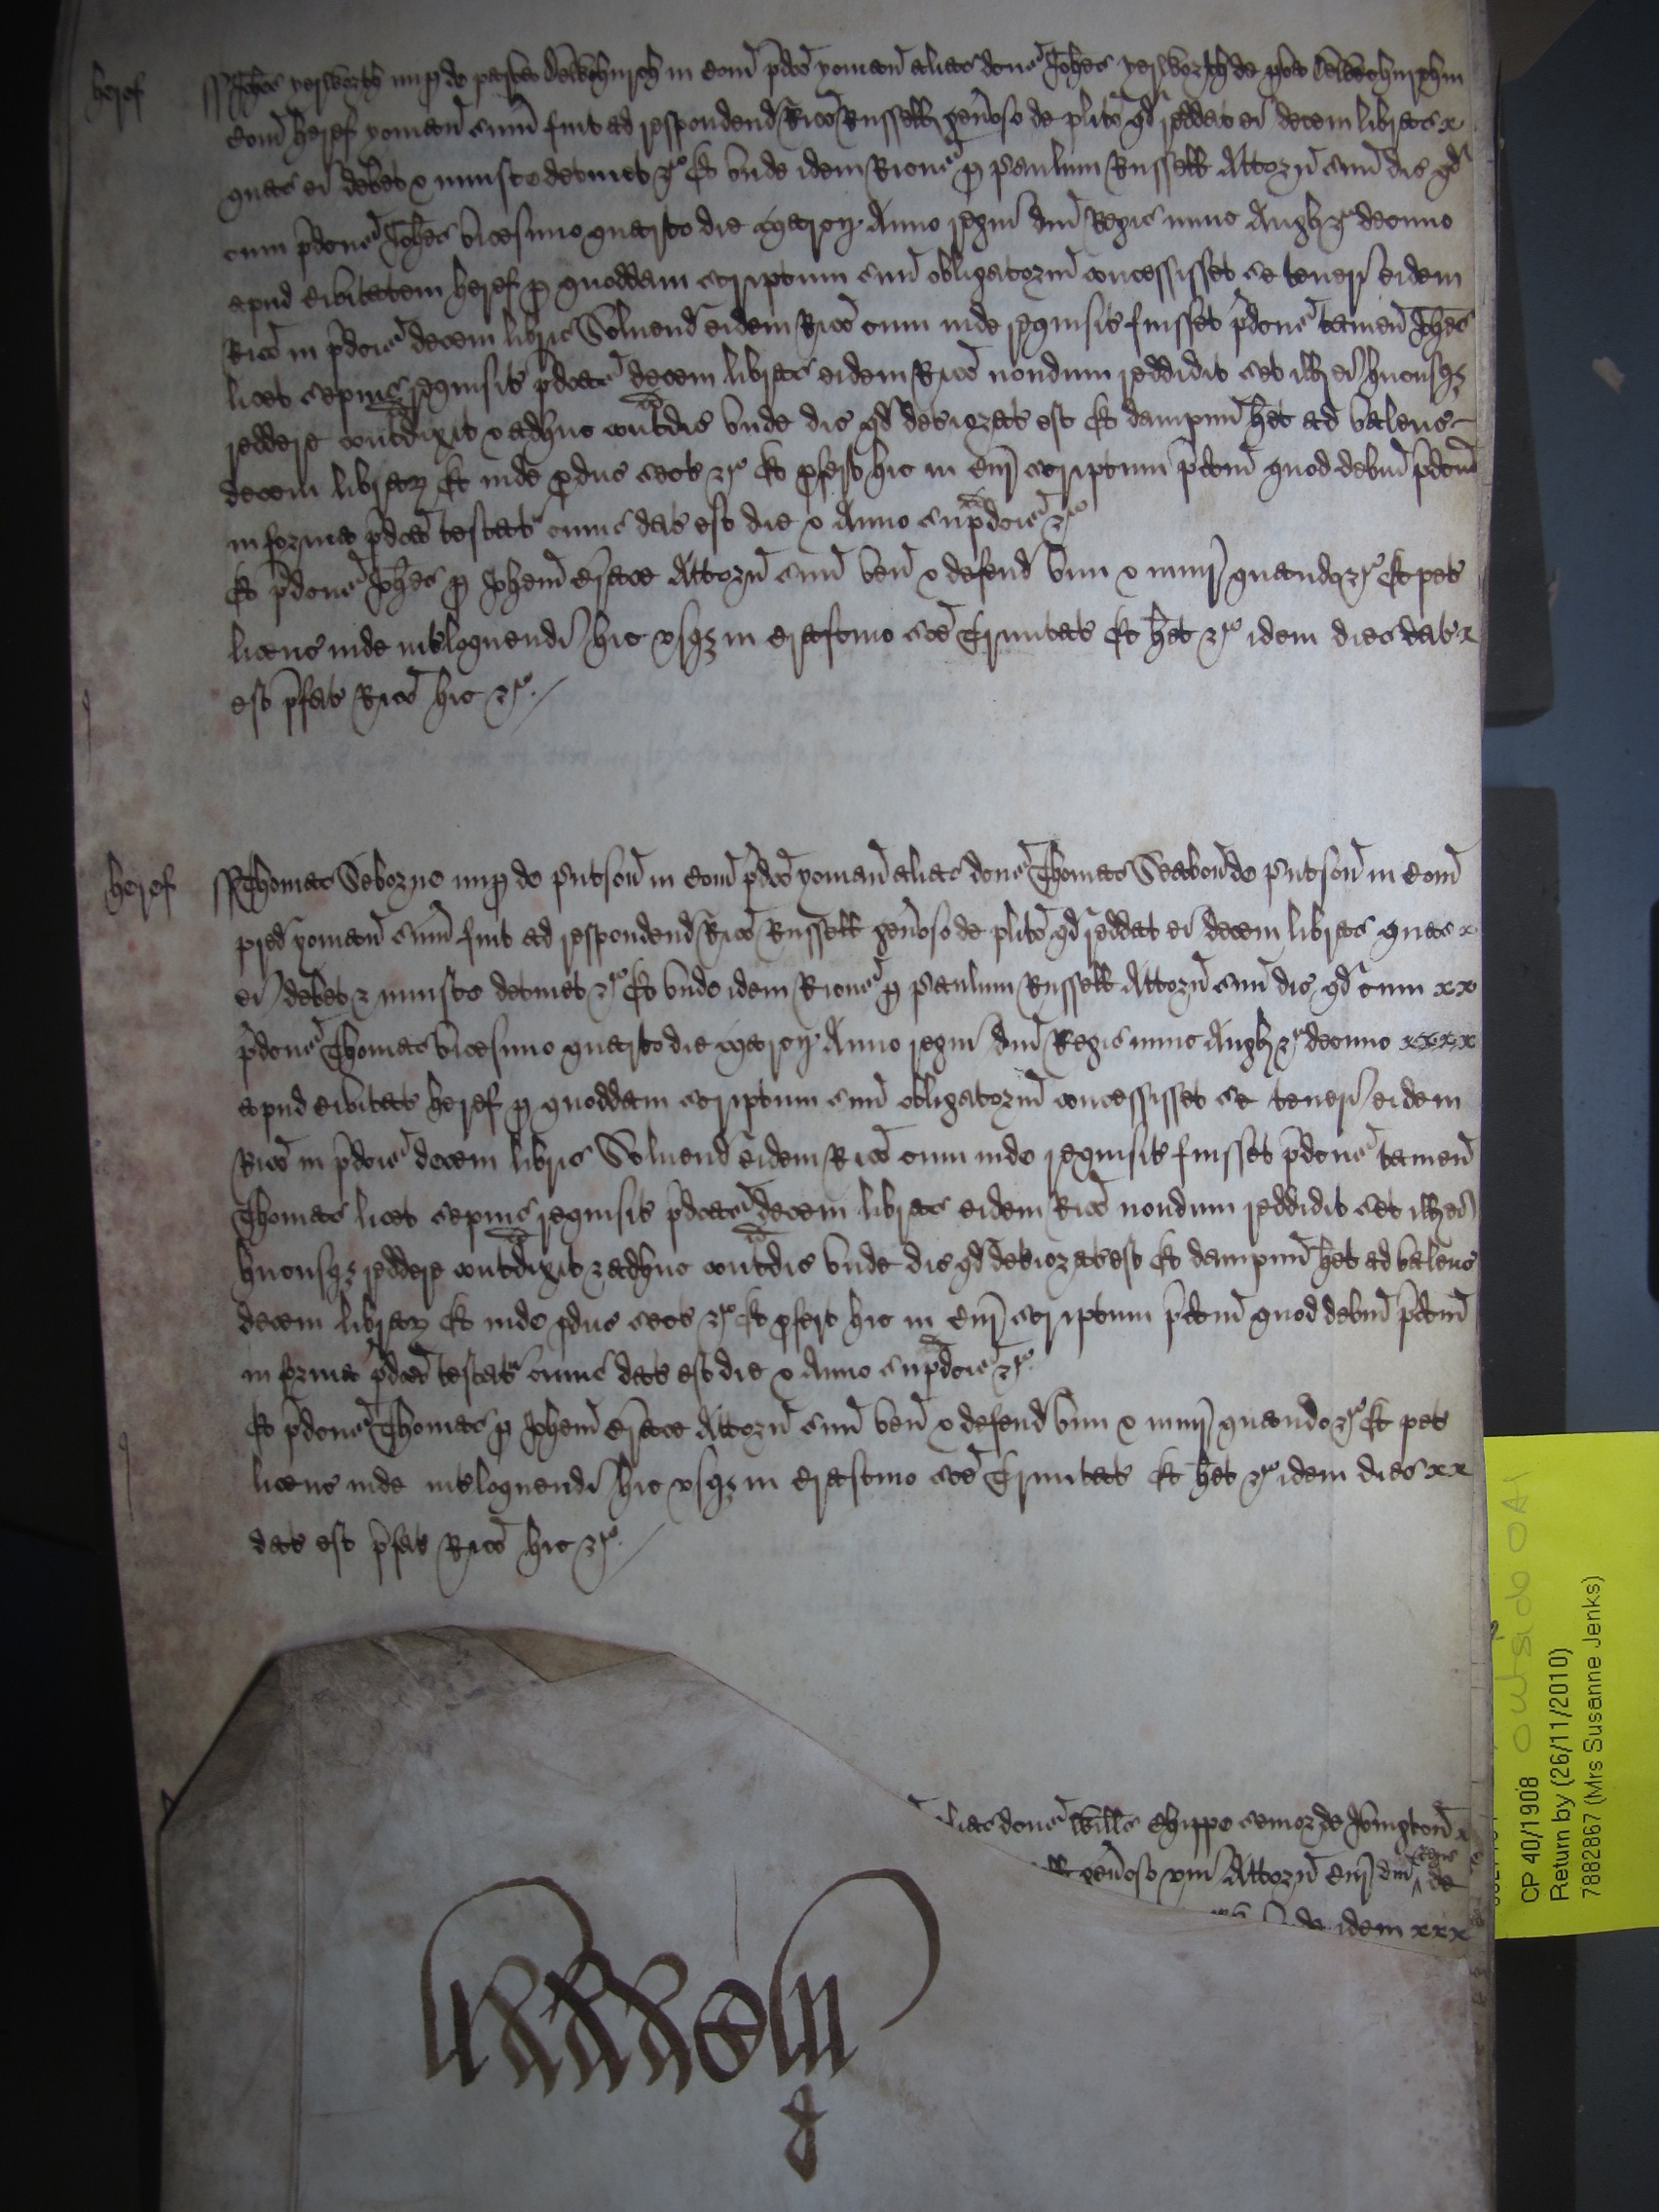 heref
Johes yerworth nup de in Com pdco yoman alias dcus Johes yerworth de in
Com heref yoman sum fuit ad respondend Rico Russell genoso de plito qd reddat ei decem libras x
quas ei debet & iniuste detinet &c Et unde idem Ricus p Paulum Russell Attorn suu dic qd
cum pdcus Johes vicesimo quarto die Marcij Anno regni dni Regis nunc Angl &c decimo
apud Civitatem heref p quoddam scriptum suu obligatoriu concessisset se teneri eidem
Rico in pdcis decem libris Solvend eidem Rico cum inde requisit fuisset pdcus tamen Johes
licet sepius requisit pdcas decem libras eidem Rico nondum reddidit set ill ei hucusq
reddere contradixit & adhuc contradic unde dic qd deteriorat est Et dampnu het ad valenc
decem librar Et inde produc sect &c Et profert hic in Cur scriptum pdcm quod debitu pdcm
in forma pdca testat cuius dat est die & Anno supradcis &c
Et pdcus Johes p Johem Attorn suu ven & defend vim & iniur quando &c Et pet
licenc inde interloquendi hic usq in Crastino sce Trinitatis Et het &c idem dies dat x
est pfat Rico hic &c
heref
Thomas Seborne nup de Putson in Com pdco yoman alias dcus Thomas Seabon de Putson in Com
pred yoman sum fuit ad respondend Rico Russell genoso de plito qd reddat ei decem libras quas x
ei debet & iniuste detinet &c Et unde idem Ricus p Paulum Russell Attorn suu dic qd cum xx
pdcus Thomas vicesimo quarto die Marcij Anno regni dni Regis nunc Angl &c decimo xxxx
apud Civitat heref p quoddam scriptum suu obligatoriu concessisset se teneri eidem
Rico in pdcis decem libris Solvend eidem Rico cum inde requisit fuisset pdcus tamen
Thomas licet sepius requisit pdcas decem libras eidem Rico nondum reddidit set ill ei
hucusq reddere contradixit & adhuc contradic unde dic qd deteriorat est Et dampnu het ad valenc
decem librar Et inde produc sect &c Et profert hic in Cur scriptum pdcm quod debitu pdcm
in forma pdca testat cuius dat est die & Anno supradcis &c
Et pdcus Thomas p Johem Attorn suu ven & defend vim & iniur quando &c Et pet
licenc inde interloquendi hic usq in Crastino sce Trinitatis Et het &c idem dies xx
dat est pfat Rico hic &c
alias dcus Wills Chippe senior de x
genoso un Attorn Cur dni Regis de
idem xxx
outside
CP 40/1908
Return by (26/11/2010)
7882867 (Mrs Susanne Jenks)